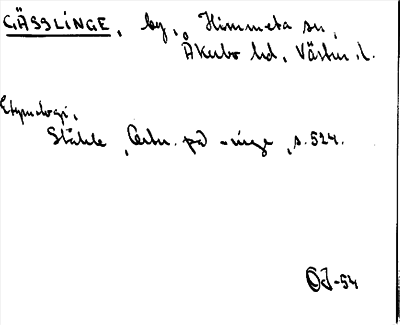 GÄSSLINGE, by, Himmeta sn,
Åkerbo hd, Västm. l.
Etymologi,
Ståhle, Ortn. på -inge, s. 524.
OJ-54